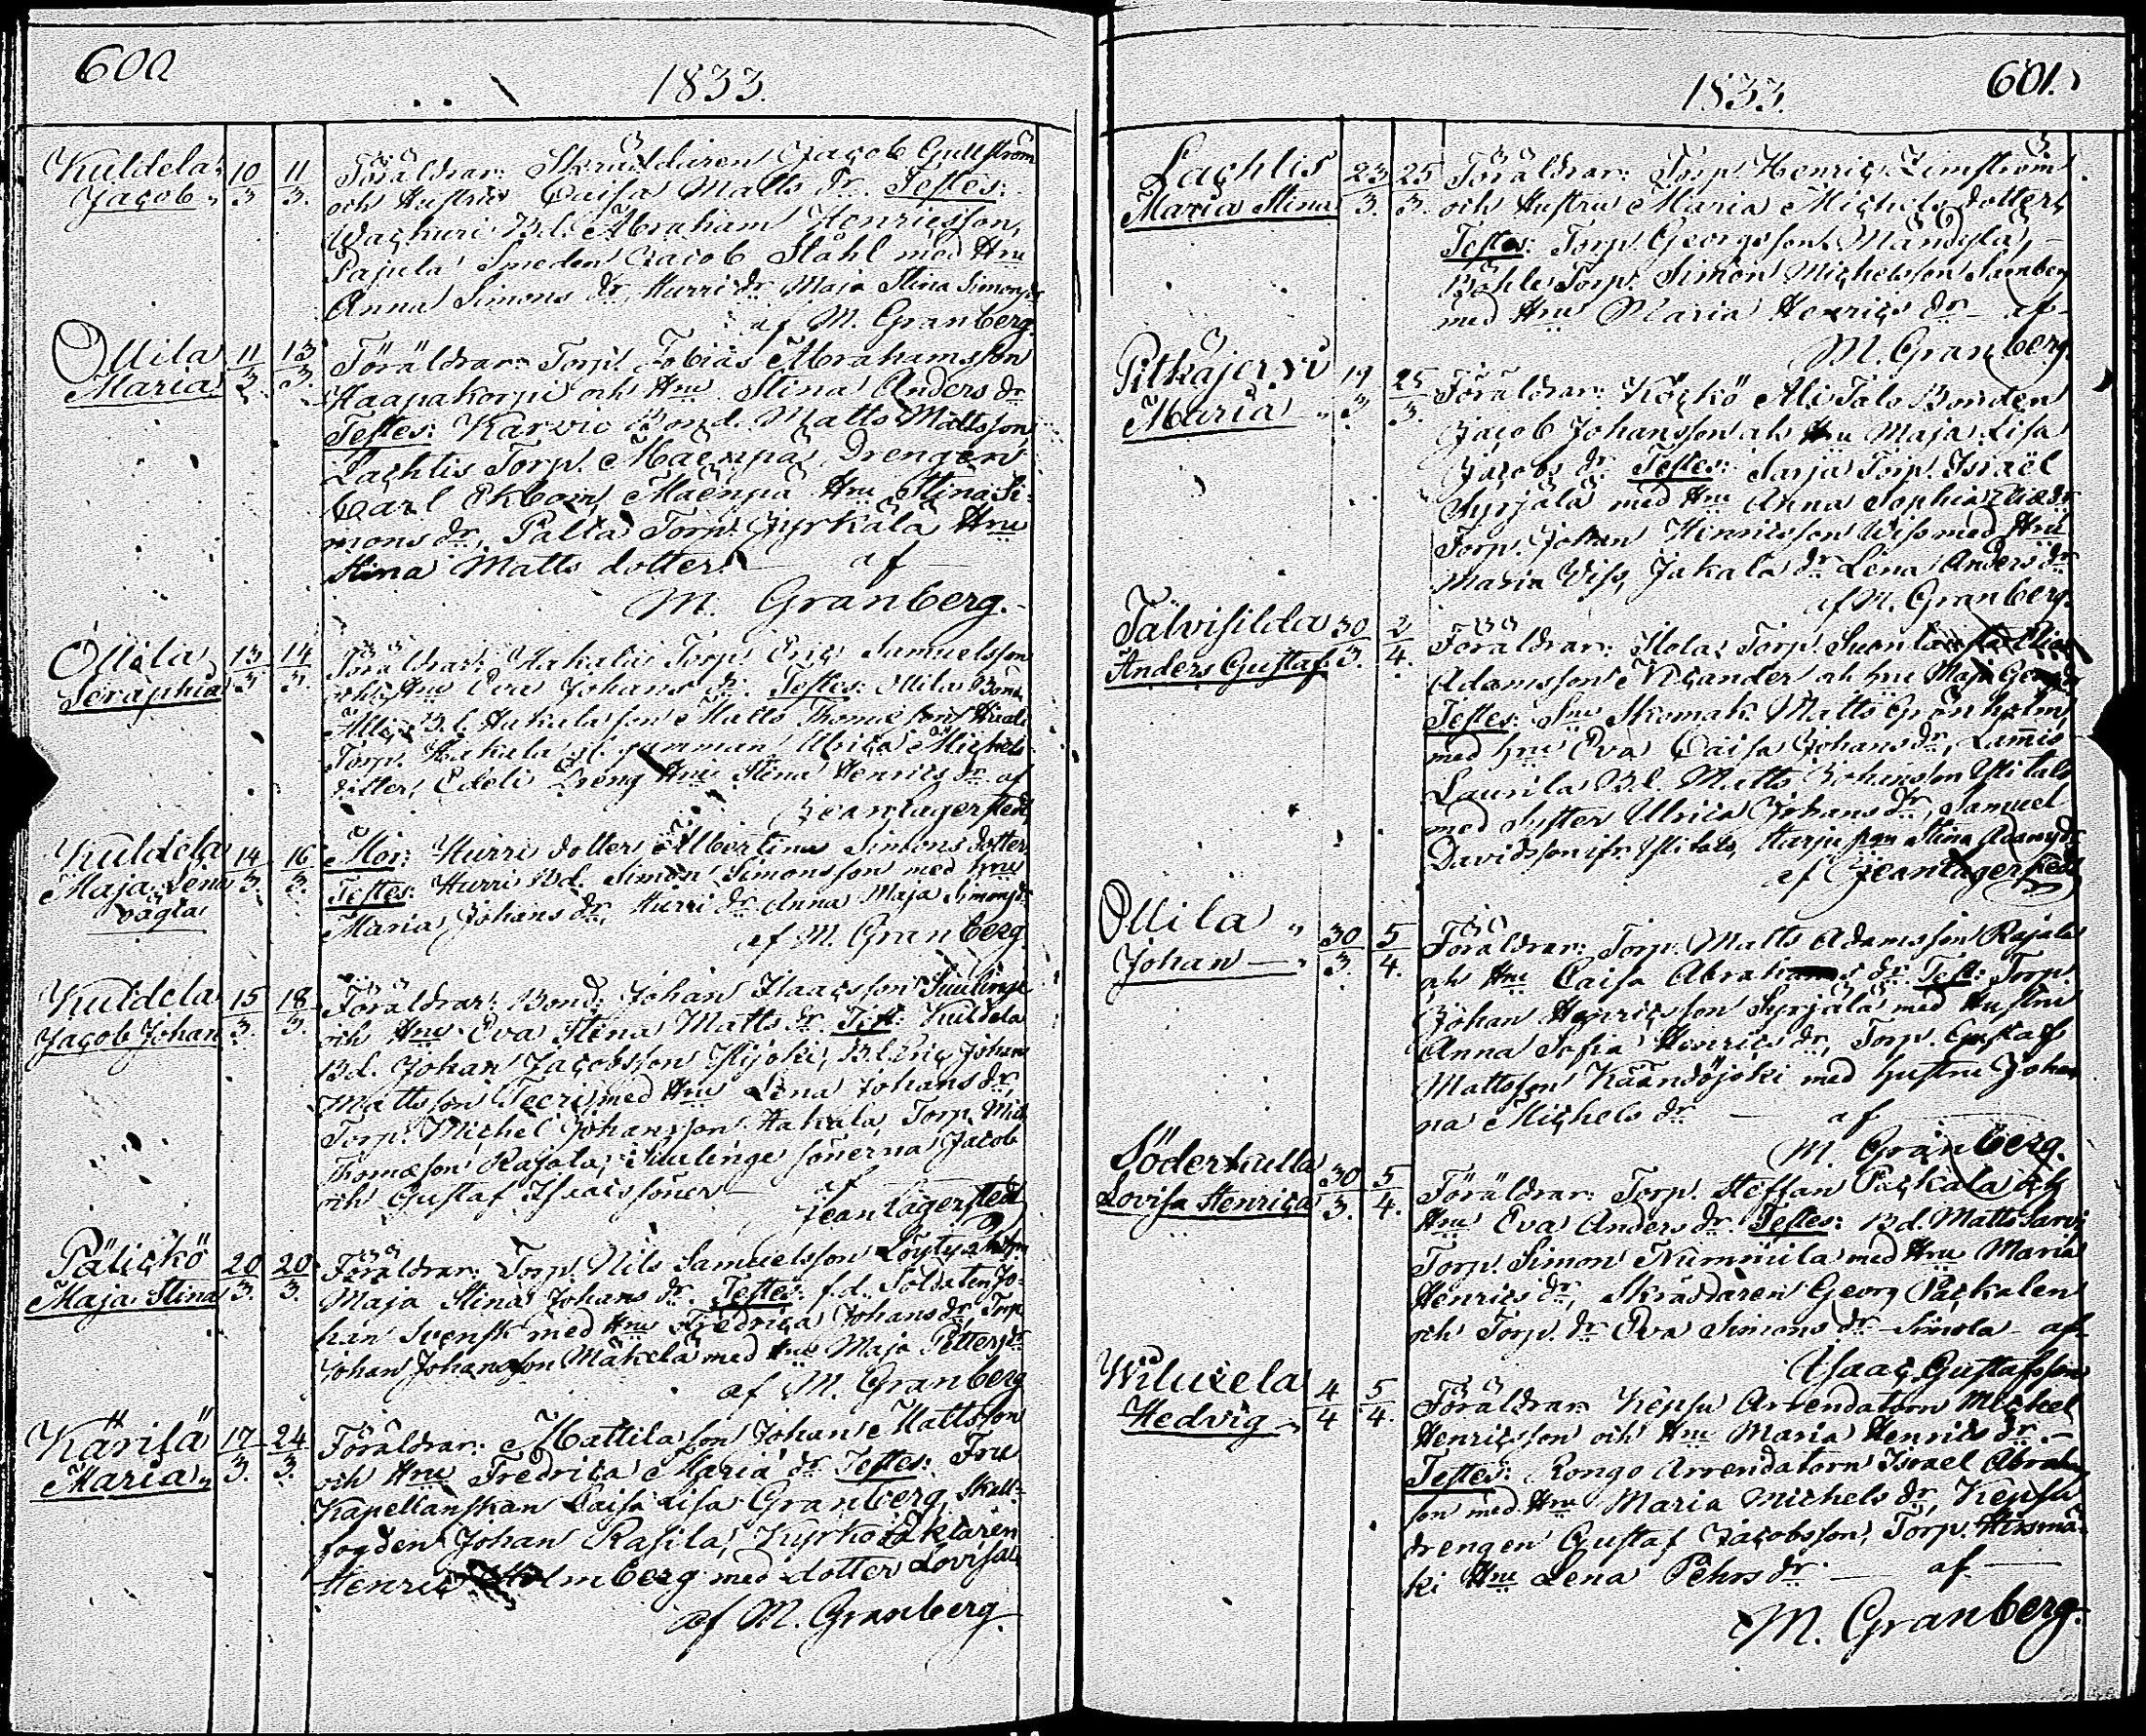 600
1833.
Kuldela
Jacob
10/3 11/3.
Föräldrar: Skräddaren Jacob Gullström
och Hustru Caisa Matts dr. Testes:
Bd. Abraham Henricsson,
Pajula Smeden Jacob Ståhl med Hru
Anna Simons dr, Hurri dr Maja Stina Simons dr
af M. Granberg.
Ollila
Maria
11/3. 13/3.
Föräldrar: Torp. Tobias Abrahamsson
Haapakorpi och Hru Stina Anders dr
Testes: Karvio Bond. Matts Mattsson,
Lachtis Torp. Mäenpää, Drengen
Carl Ekbom, Mäenpä Hru Stina Si-
mons dr, Palta Torp. Jyrkälä Hru
Stina Matts dotter — af —
M. Granberg.
Ollila
Seraphia
13/3. 14/3.
Föräldrar: Hakala Torp. Eric Samuelsson
och Hru Eva Johans dr. Testes: Ollila Bond.
Bd. Hakala son Matts Thomæson
Torp. Hakala gl. gumman Ulrica Michels
dotter, Edeli Dreng Hru Stina Henrics dr af
Jean Lagerstedt
Kuldela
Maja Lena
oägta
14/3. 16/3.
Mor: Hurri dotter Albertina Simons dotter
Testes: Hurri Bd. Simon Simonsson med hru
Maria Johans dr, Hurri dr Anna Maja Simons dr
af M. Granberg.
Kuldela
Jacob Johan
15/3. 18/3.
Föräldrar: Bond. Johan Isaacsson Siulinge
och Hru Eva Stena Matts dr. Test: Kuldela
Bd. Johan Jacobsson Ylijoki, Bd. Eric Johan
Mattsson Teeri med Hru Lena Johans dr,
Torp. Michel Johansson Hakala, Torp. Mich.
Thomæson Rajala, Siulinge sönerna Jacob
och Gustaf Isaacssöner — af
Jean Lagerstedt
Pälickö
Maja Stina
20/3. 20/3.
Föräldrar: Torp. Nils Samuelsson Löyty
Maja Stina Johans dr. Testes: f.d. Soldaten Jo-
han Svensk med Hru Fredrica Johans dr, Torp.
Johan Johansson Mäkelä med Hru Maja Petters dr
af M. Granberg
Kärisä
Maria
17/3. 24/3.
Föräldrar: Mattila son Johan Mattsson
och Hru Fredrica Maria dr Testes: Fru
Kapellanskan Caisa Lisa Granberg, Skall-
fogden Johan Rasila, Kyrkowäktaren
Henric Holmberg med dotter Lovisa
af M. Granberg.
1833.
601.
Lachtis
Maria Stina
23/3. 25/3.
Föräldrar: Torp. Henric Limström
och Hustru Maria Michels dotter,
Testes: Torp. Georgsson Mändylä,
Torp. Simon Michelsson Samberg
med Hru Maria Henrics dr — af
M. Granberg.
Pitkäjervi
Maria
19/3 25/3.
Föräldrar: Köckö Ali Talo Bonden
Jacob Johansson och Hru Maja Lisa
Jacobs dr Testes: Sarja Torp. Israël
Syrjälä med Hru Anna Sophia
Torp. Johan Henricsson Wiss med Hru
Maria Wiss, Jakala dr Lena Anders dr
af M. Granberg.
Talvisilda
Anders Gustaf
30/3. 2/4.
Föräldrar: Isotalo Torp.
Adamsson Nicander och hru Maja
Testes: Skomak. Matts Grönholm
med hru Eva Caisa Johans dr, Lammis
Laurila Bd. Matts Johansson Ylitalo
med Syster Ulrica Johans dr, Samuel
Davidsson ifr. Ylitalo, Harju Stina Adams dr
af Jean Lagerstedt
Ollila
Johan
30/3. 5/4.
Föräldrar: Torp. Matts Adamsson Rajala
och Hru Caisa Abrahams dr Test: Torp.
Johan Henricsson Syrjälä med Hustru
Anna Sofia Henrics dr, Torp. Gustaf
Mattsson Käändöjoki med hustru Johan
na Michels dr — af
M. Granberg.
Söderkulla
Lovisa Henrica
30/3. 5/4.
Föräldrar: Torp. Steffan Päckälä och
Hru Eva Anders dr Testes: Bd. Matts Sarvi
Torp. Simon Nummila med Hru Maria
Henrics dr, Skräddaren Georg Päckälen
och Torp. dr Eva Simons dr Simola af
Isaac Gustafsson
Wilucela
Hedvig
4/4 5/4.
Föräldrar: Kepsu Arrendatorn Michel
Henricsson och Hru Maria Henrics dr. —
Testes: Rongo Arrendatorn Israel Abraham
son med Hru Maria Michels dr, Kepsu
drengen Gustaf Jacobsson, Torp. Hirsmä-
ki Hru Lena Pehrs dr — af
M. Granberg.